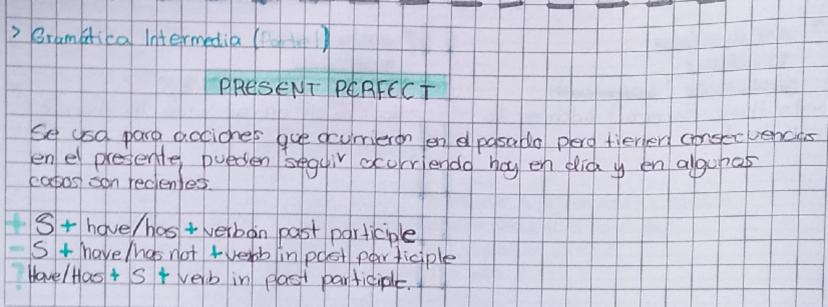 > Gramática Intermedia (Parte 1)
PRESENT PERFECT
Se usa para acciones que ocurrieron en el pasado pero tienen consecuencias
en el presente, pueden seguir ocurriendo hoy en día y en algunos
casos son recientes.
+ S + have/has + verb in past participle
- S + have/has not + verb in past participle
? Have/Has + S + verb in past participle.